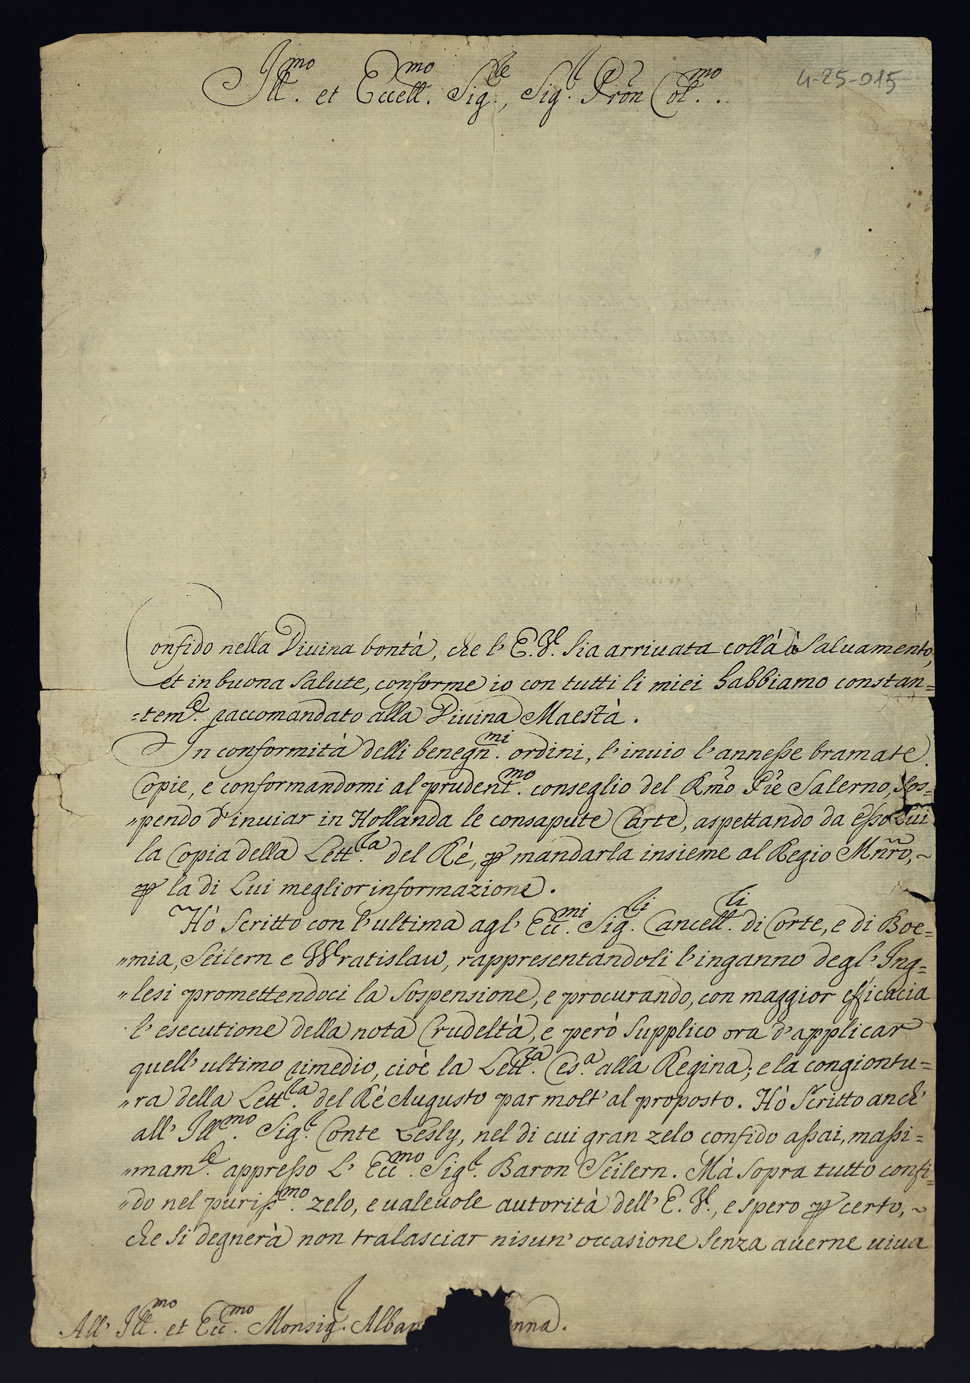 Ill.mo et Eccell.mo Sig.re, Sig.r Pron Col.mo.
4-25-015
Confido nella Diuina bontà, che l'E.V. sia arriuata collà à saluamento,
et in buona salute, conforme io con tutti li miei habbiamo constan=
=tem.e raccomandato alla Diuina Maestà.
In conformità delli benegn.mi ordini, l'inuio l'annesse bramate
Copie, e conformandomi al prudent.mo conseglio del Rmo Pre Salerno, sos=
"pendo d'inuiar in Hollanda le consapute Carte, aspettando da esso
la Copia della Lett.ra del Ré, p mandarla insieme al Regio Mnro, ~
p la di Lui meglior informazione.
Hò scritto con l'ultima agl' Ecc.mi Sig.ri Cancell.ri di Corte, e di Boe=
"mia, Seilern e Wratislaw, rappresentandoli l'inganno degl' Ing=
"lesi promettendoci la sospensione, e procurando, con maggior efficacia
l'esecutione della nota Crudeltà, e però supplico ora d'applicar
quell' ultimo rimedio, cioè la Lett.ra Ces.a alla Regina; e la congiontu=
"ra della Lett.ra del Ré Augusto par molt' al proposto. Hò scritto anch'
all' Ill.mo Sig.r Conte Lesly, nel di cui gran zelo confido assai, massi=
"mam.e appresso l' Ecc.mo Sig.r Baron Seilern. Mà sopra tutto confi=
"do nel puriss.mo zelo, e valeuole autorità dell' E.V., e spero p certo, ~
che si degnerà non tralasciar nisun' occasione senza auerne uiua
All' Ill.mo et Ecc.mo Monsig.r Alban nna.